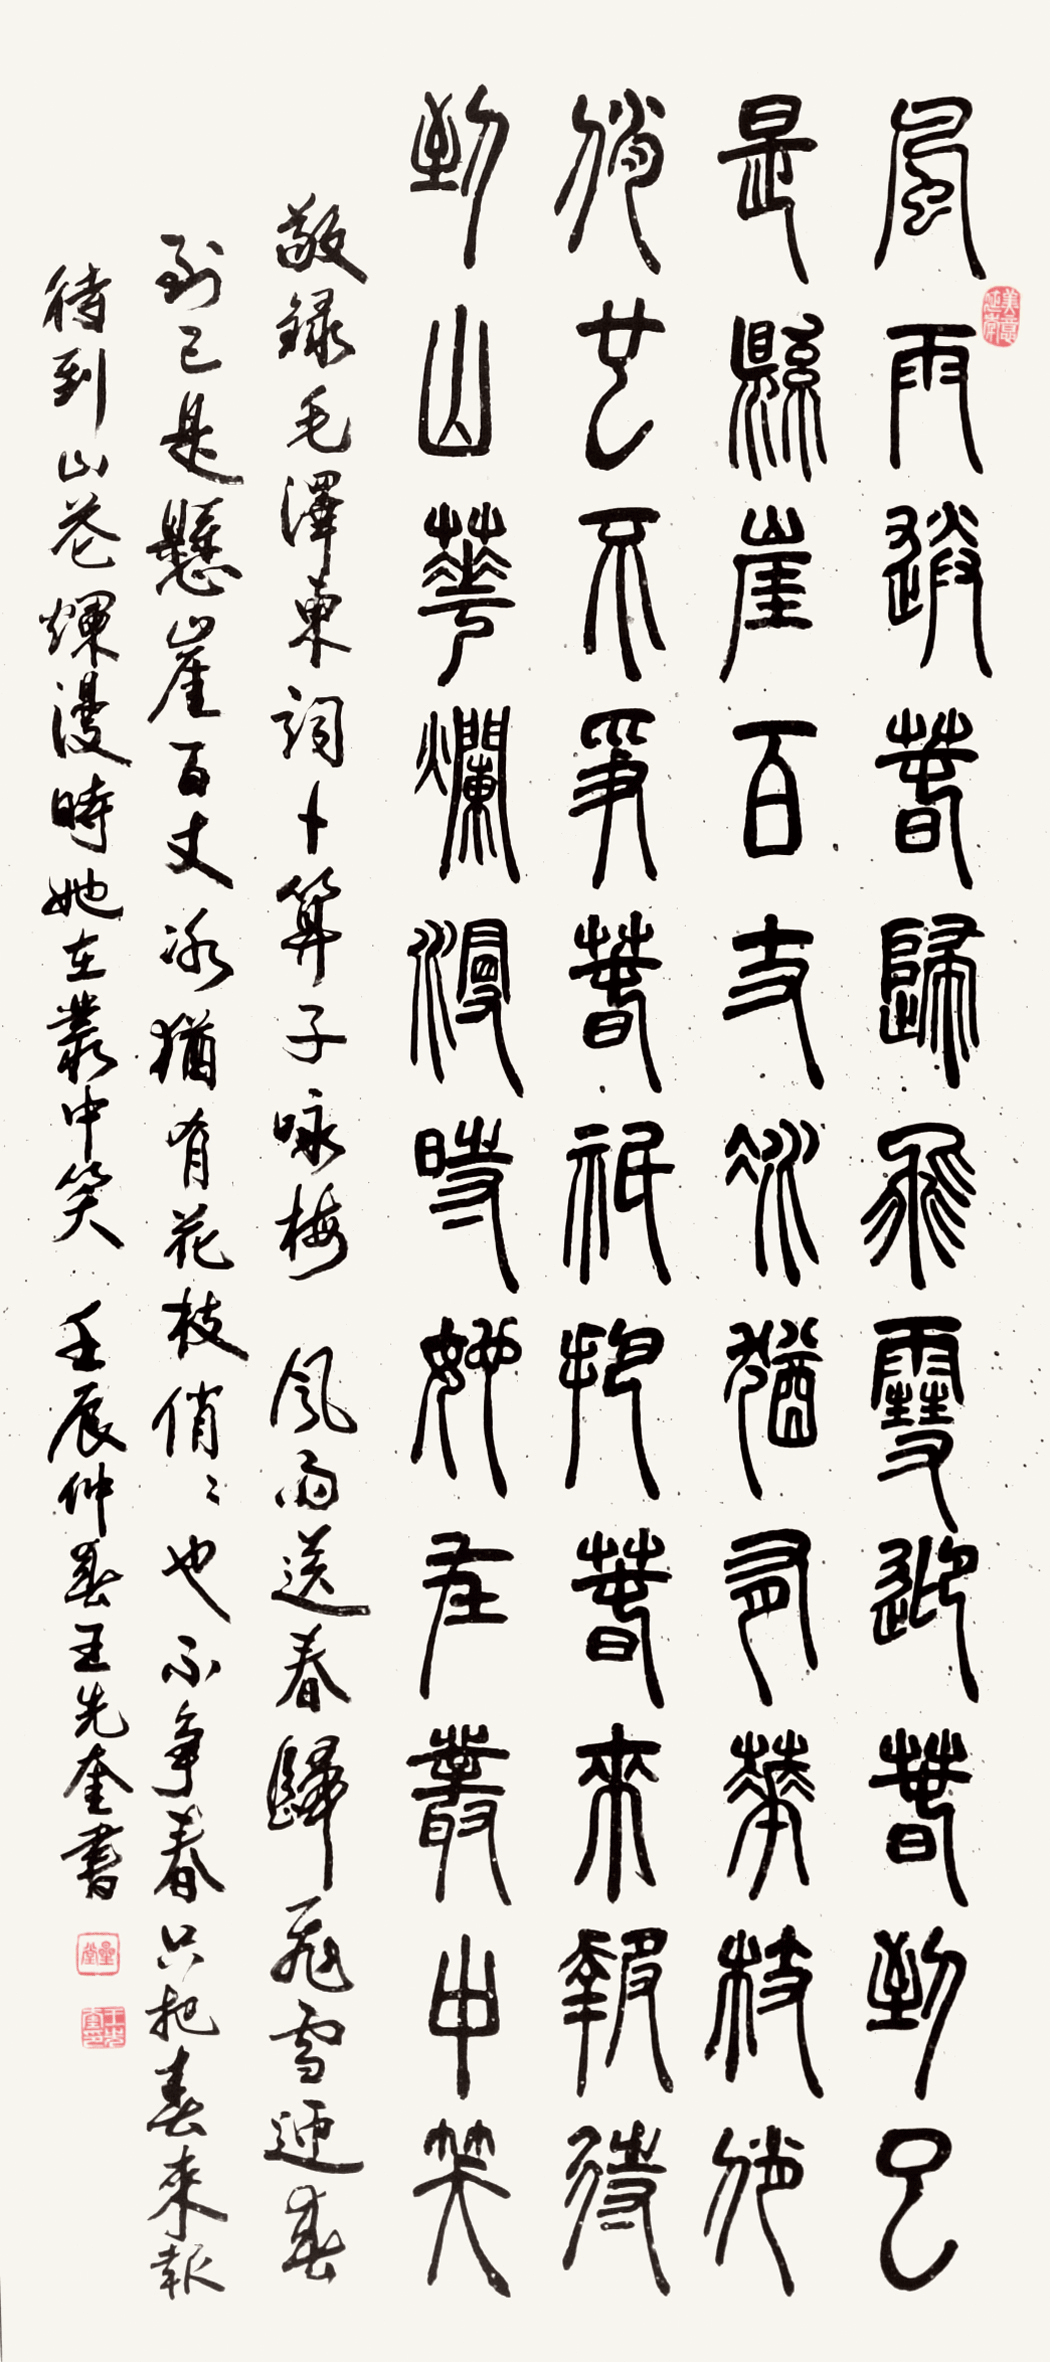 風雨送春歸飛雪迎春到已
是縣崖百丈冰猶有華枝俏
俏也不爭春祇把春來報待
到山華爛漫時她在叢中笑
敬録毛澤東詞卜算子咏梅 风雨送春歸飛雪迎春
到已是懸崖百丈冰猶有花枝俏俏也不爭春只把春來報
待到山花爛漫時她在叢中笑 壬辰仲春王先奎書
美意延年